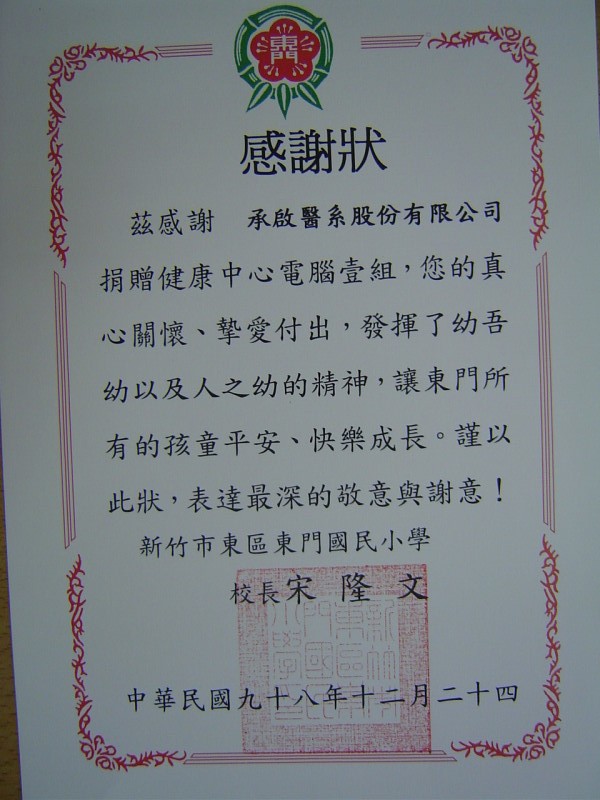 東門
感謝狀
茲感謝 承啟醫系股份有限公司
捐贈健康中心電腦壹組，您的真
心關懷、摯愛付出，發揮了幼吾
幼以及人之幼的精神，讓東門所
有的孩童平安、快樂成長。謹以
此狀，表達最深的敬意與謝意！
新竹市東區東門國民小學
校長宋隆文
中華民國九十八年十二月二十四